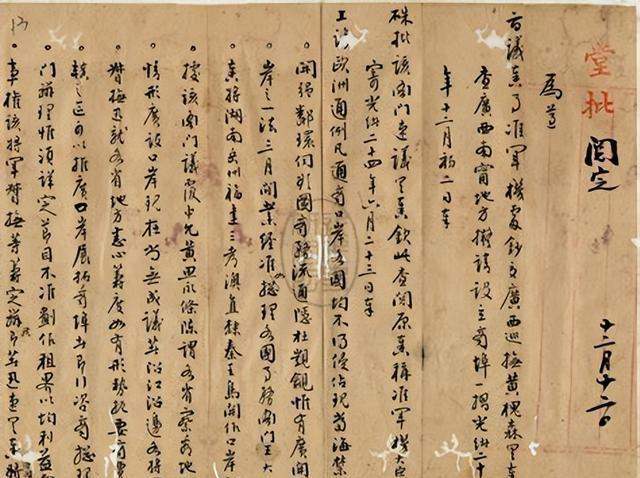 堂批 閱定
十二月十六日
為尊
旨議奏事准軍機處鈔交廣西巡撫黃槐森奏
查廣西南寧地方擬請設立商埠一摺光緒二十
年十二月初二日奉
硃批該衙門速議具奏欽此查閱原奏稱准軍機大臣
寄光緒二十四年六月二十三日奉
上諭歐洲通例凡通商口岸各國均不得侵佔現當海禁
開納鄰環伺欲圖商務流通隱杜覬覦惟有廣開
岸之一法三月間業經准總理各國事務衙門王大
奏將湖南岳州福建三都澳直隸秦王島開作口岸
據該衙門議覆中允黃思永條陳謂各省察看地
情形廣設口岸現在尚無成議著沿江沿邊各將
督撫迅就各省地方悉心籌度如有形勢扼要商賈
輳之區可以推廣口岸展拓商埠者即行咨商總理
門辦理惟須詳定節目不准劃作租界以均利益
事權該將軍督撫等籌定辦即著迅速具奏將